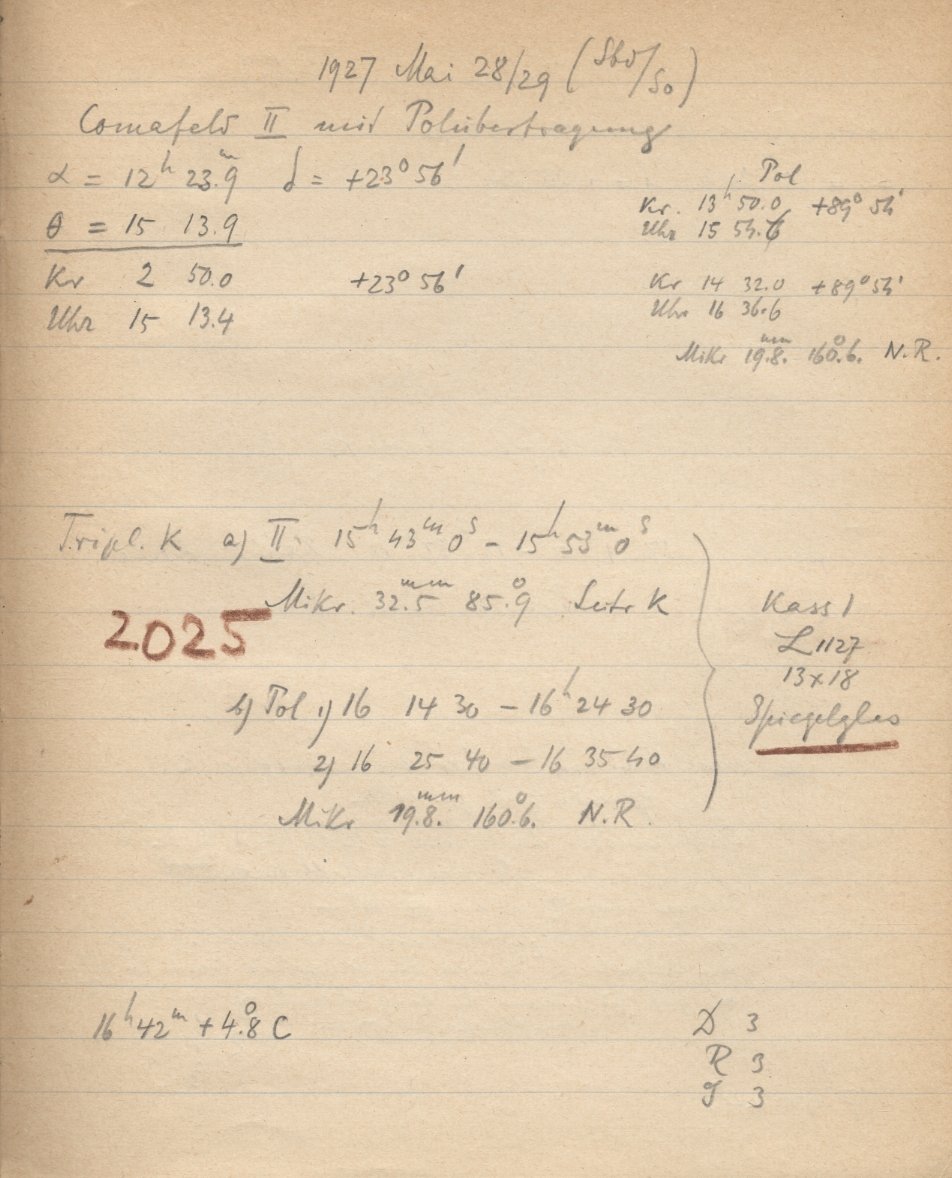 1927 Mai 28/29 (Sbd/So)
Comafeld II mit Polübertragung
α = 12ʰ 23ᵐ.9 δ = +23° 56'
θ = 15 13.9
Kr 2 50.0 +23° 56'
Uhr 15 13.4
Pol
Kr. 13ʰ 50.0 +89° 54'
Uhr 15 54.6
Kr 14 32.0 +89° 54'
Uhr 16 36.6
Mikr 19.8ᵐᵐ. 160°.6. N.R.
Tripl. K a) II 15ʰ 43ᵐ 0ˢ – 15ʰ 53ᵐ 0ˢ
Mikr. 32.5ᵐᵐ 85°.9 Leitr K
2025
b) Pol 1) 16 14 30 – 16ʰ 24 30
2) 16 25 40 – 16 35 40
Mikr 19.8ᵐᵐ. 160°.6. N.R.
Kass 1
L 1127
13x18
Spiegelglas
16ʰ 42ᵐ + 4°.8 C
D 3
R 3
J 3